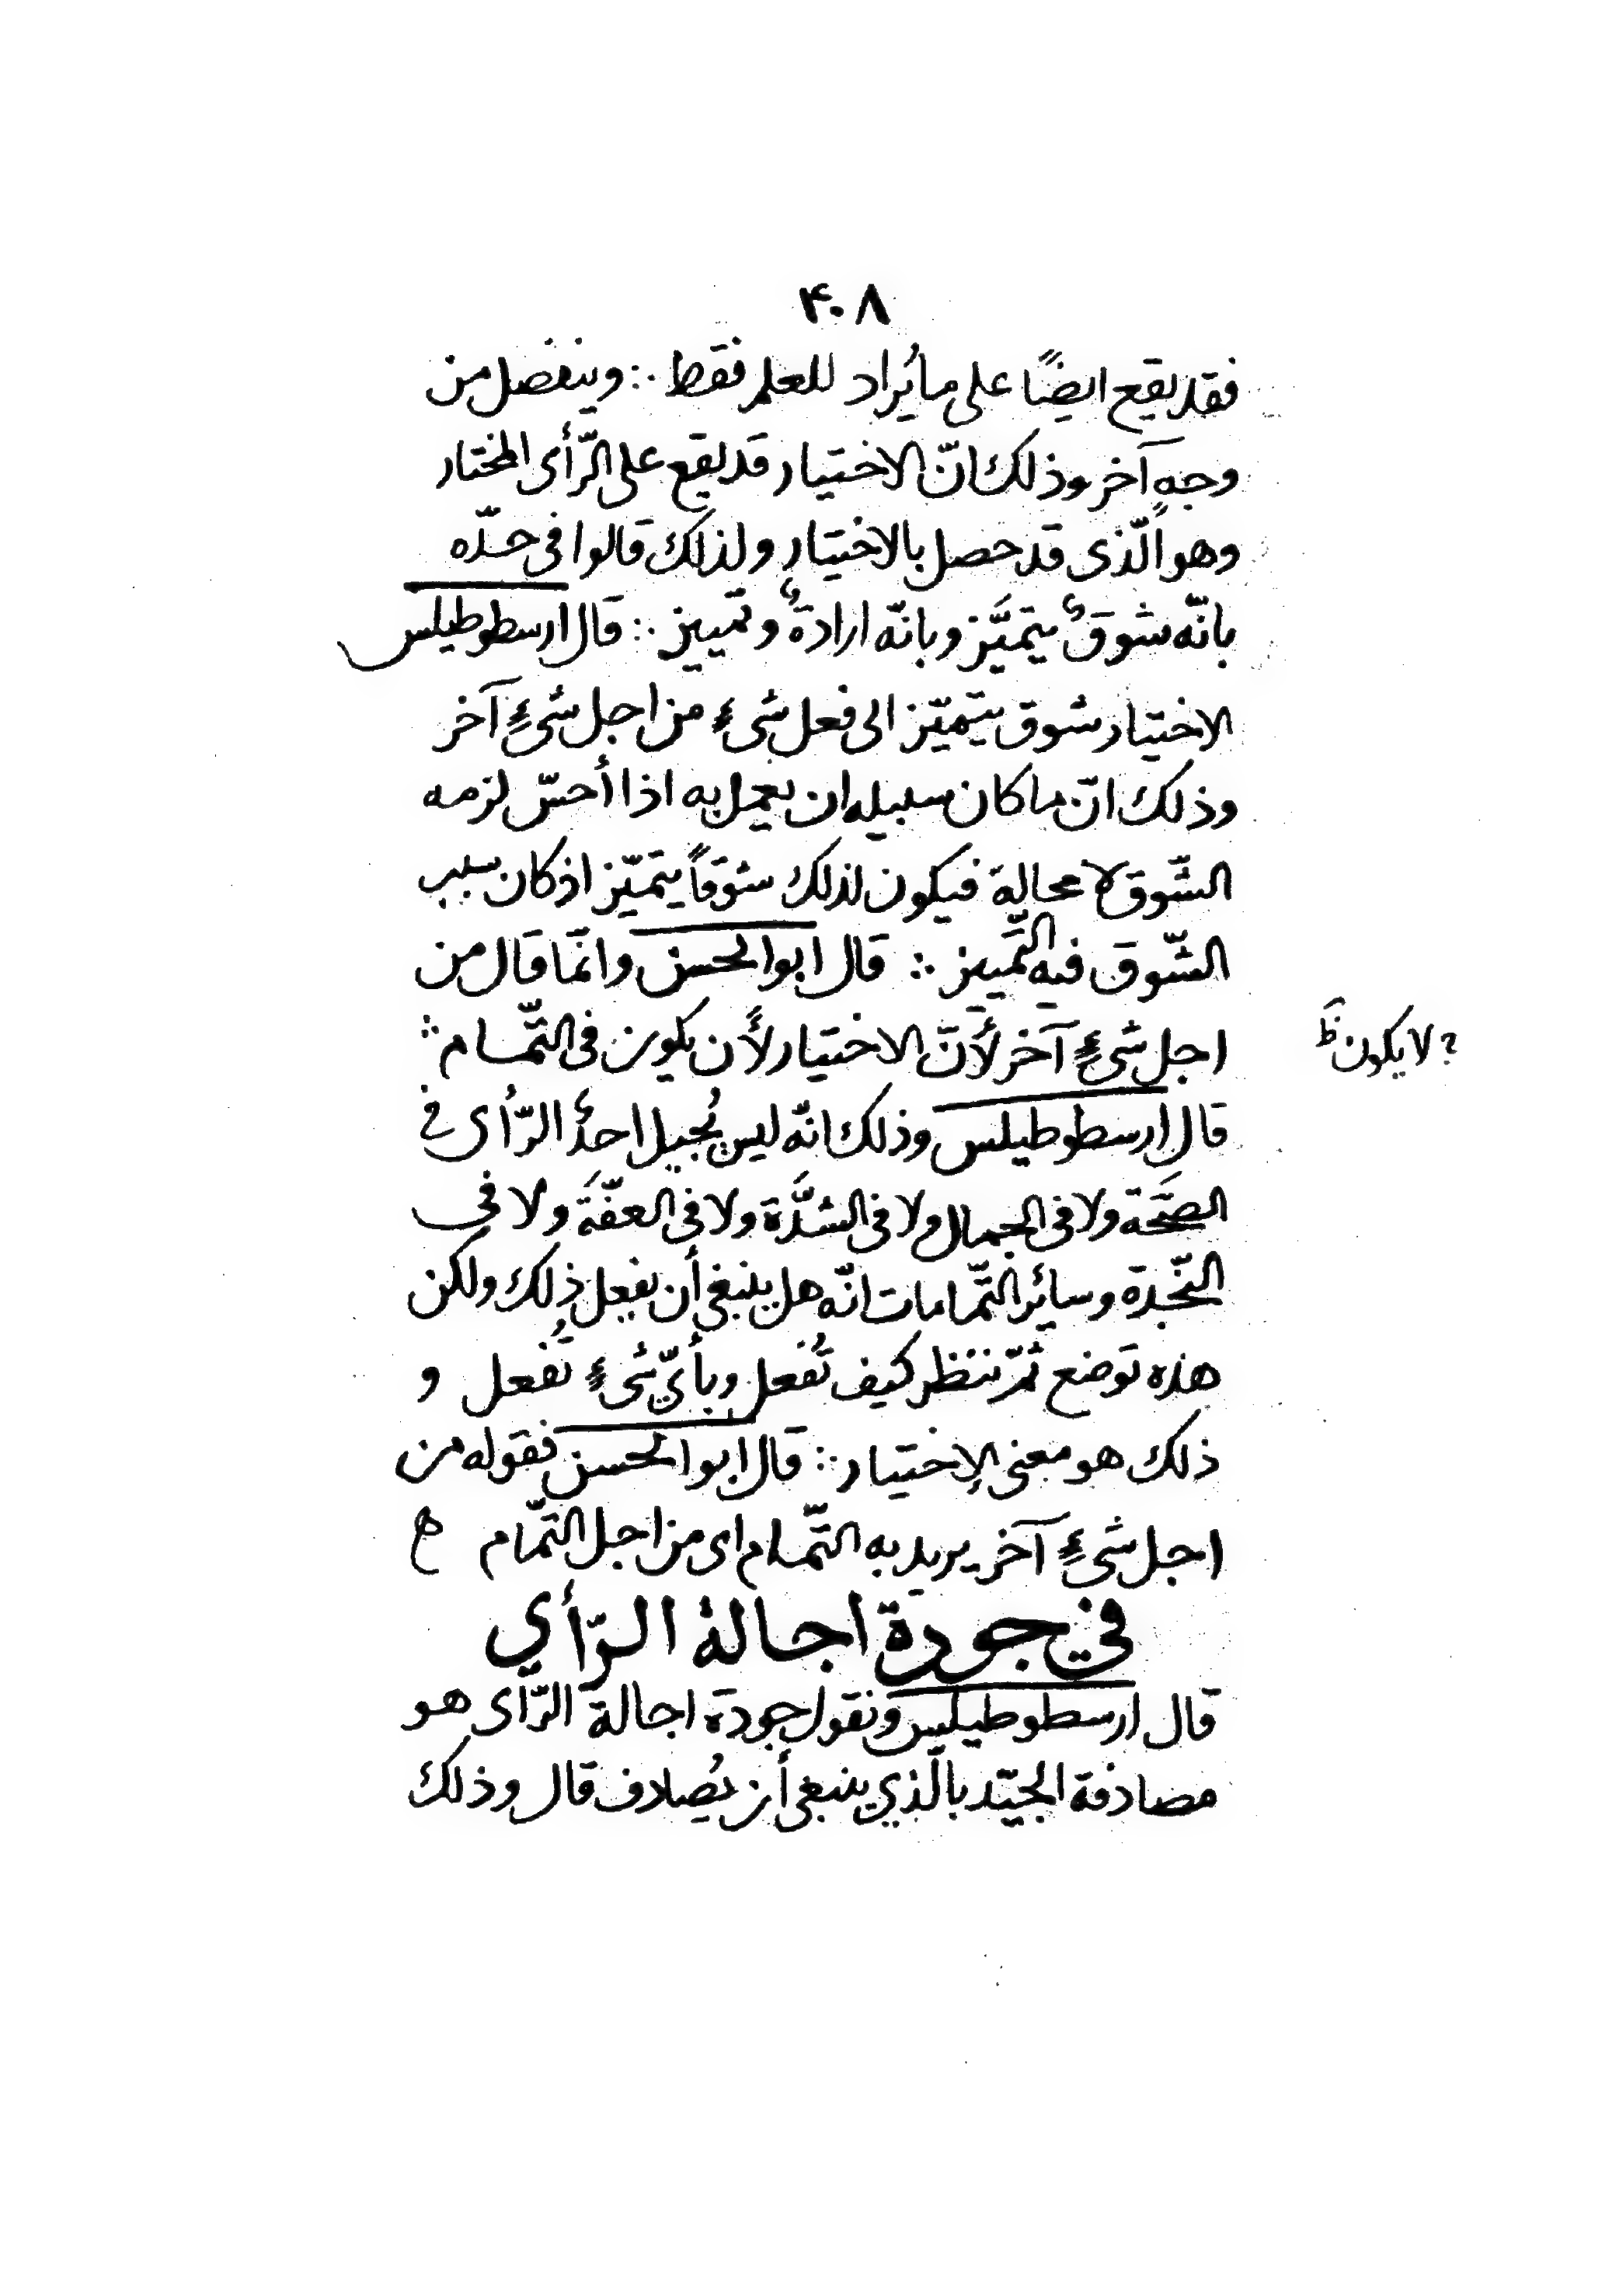 ۴۰۸
فقد يقع ايضًا على ما يُراد للعلم فقط ∴ وينفصل من
وجهٍ آخر وذلك انّ الاختيار قد يقع على الرّأى المختار
وهو الّذى قد حصل بالاختيار ولذلك قالوا فى حدّه
بانّه شوقٌ يتميَّز وبانّه ارادةٌ وتمييز ∴ قال ارسطوطيلس
الاختيار شوق يتميّز الى فعل شىءٍ من اجل شىءٍ آخر
وذلك انّ ما كان سبيله ان يعمل به اذا أحسّ لزمه
الشّوق لا محالة فيكون لذلك شوقاً يتميّز اذ كان سبب
الشّوق فيه التّمييز ∴ قال ابوالحسن وانّما قال من
اجل شىءٍ آخر لأنّ الاختيار لأن يكون فى التّمام ∴
? لا يكون ظ
قال ارسطوطيلس وذلك انّه ليس يُجيل احدٌ الرّأى فى
الصّحّة ولا فى الجمال ولا فى الشدَّة ولا فى العفّة ولا فى
النّجدة وسائر التّمامات انّه هل ينبغى أن يفعل ذلك ولكن
هذه توضع ثمّ ننظر كيف تُفعل وبأىّ شىءٍ تُفعل و
ذلك هو معنى الإختيار ∴ قال ابوالحسن فقوله من
اجل شىءٍ آخر يريد به التّمام اى من اجل التّمام
فى جودة اجالة الرّأي
قال ارسطوطيلس ونقول جودة اجالة الرّاى هو
مصادفة الجيّد بالّذي ينبغى أن يُصادف قال وذلك